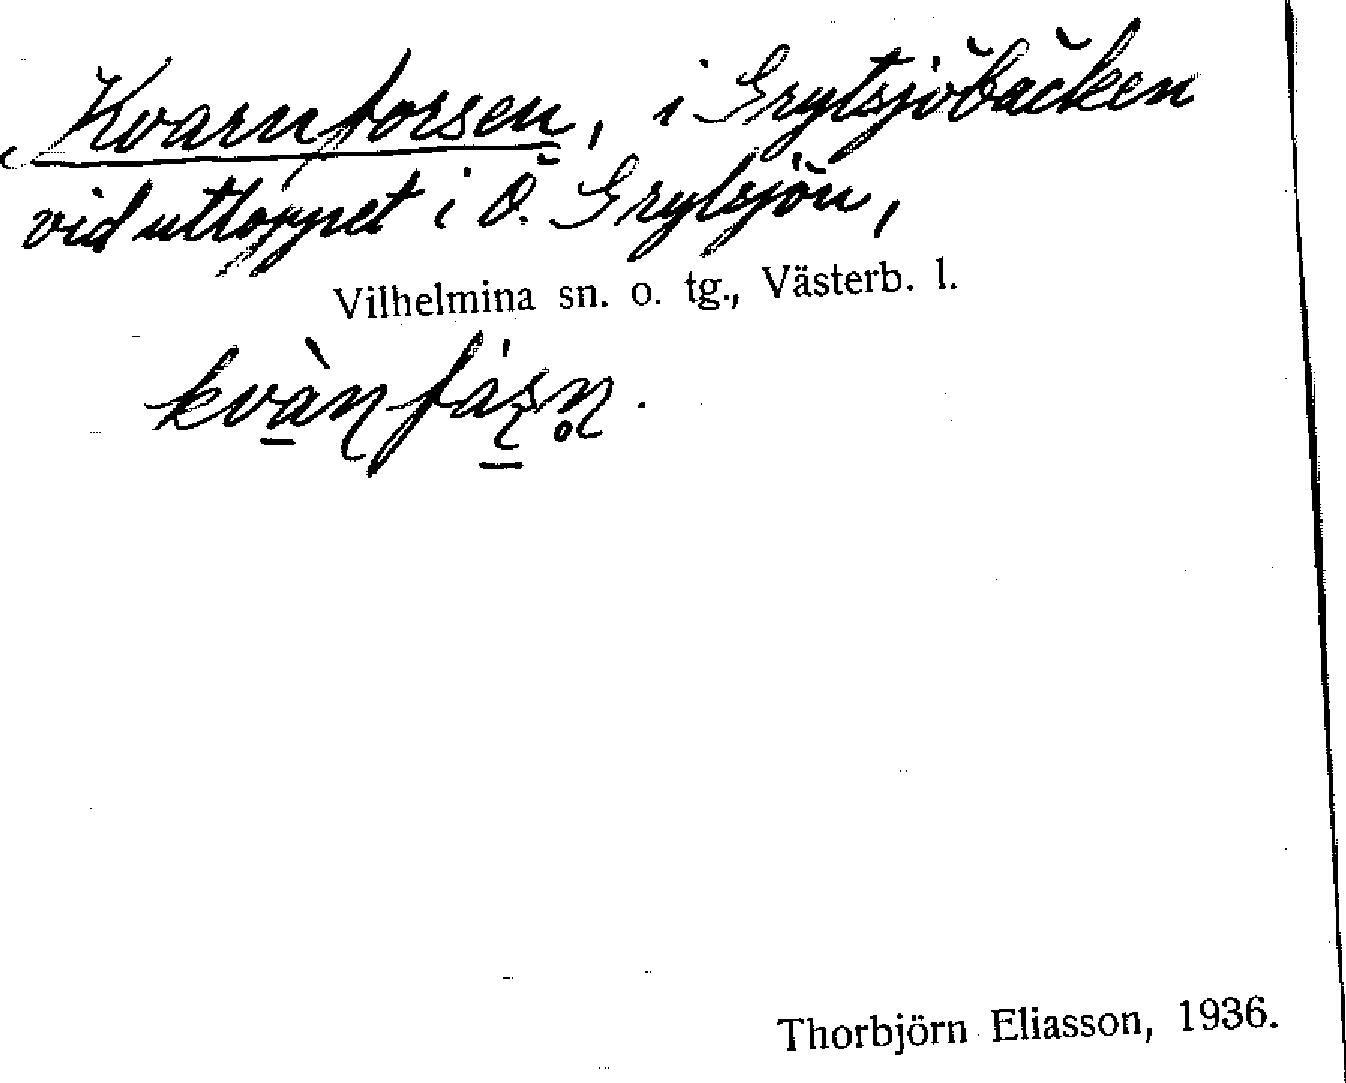 Kvarnforsen, i Grytsjöbäcken
vid utloppet i Ö. Grytsjön,
Vilhelmina sn. o. tg., Västerb. l.
kvàn̠fás̠n̥.
Thorbjörn Eliasson, 1936.